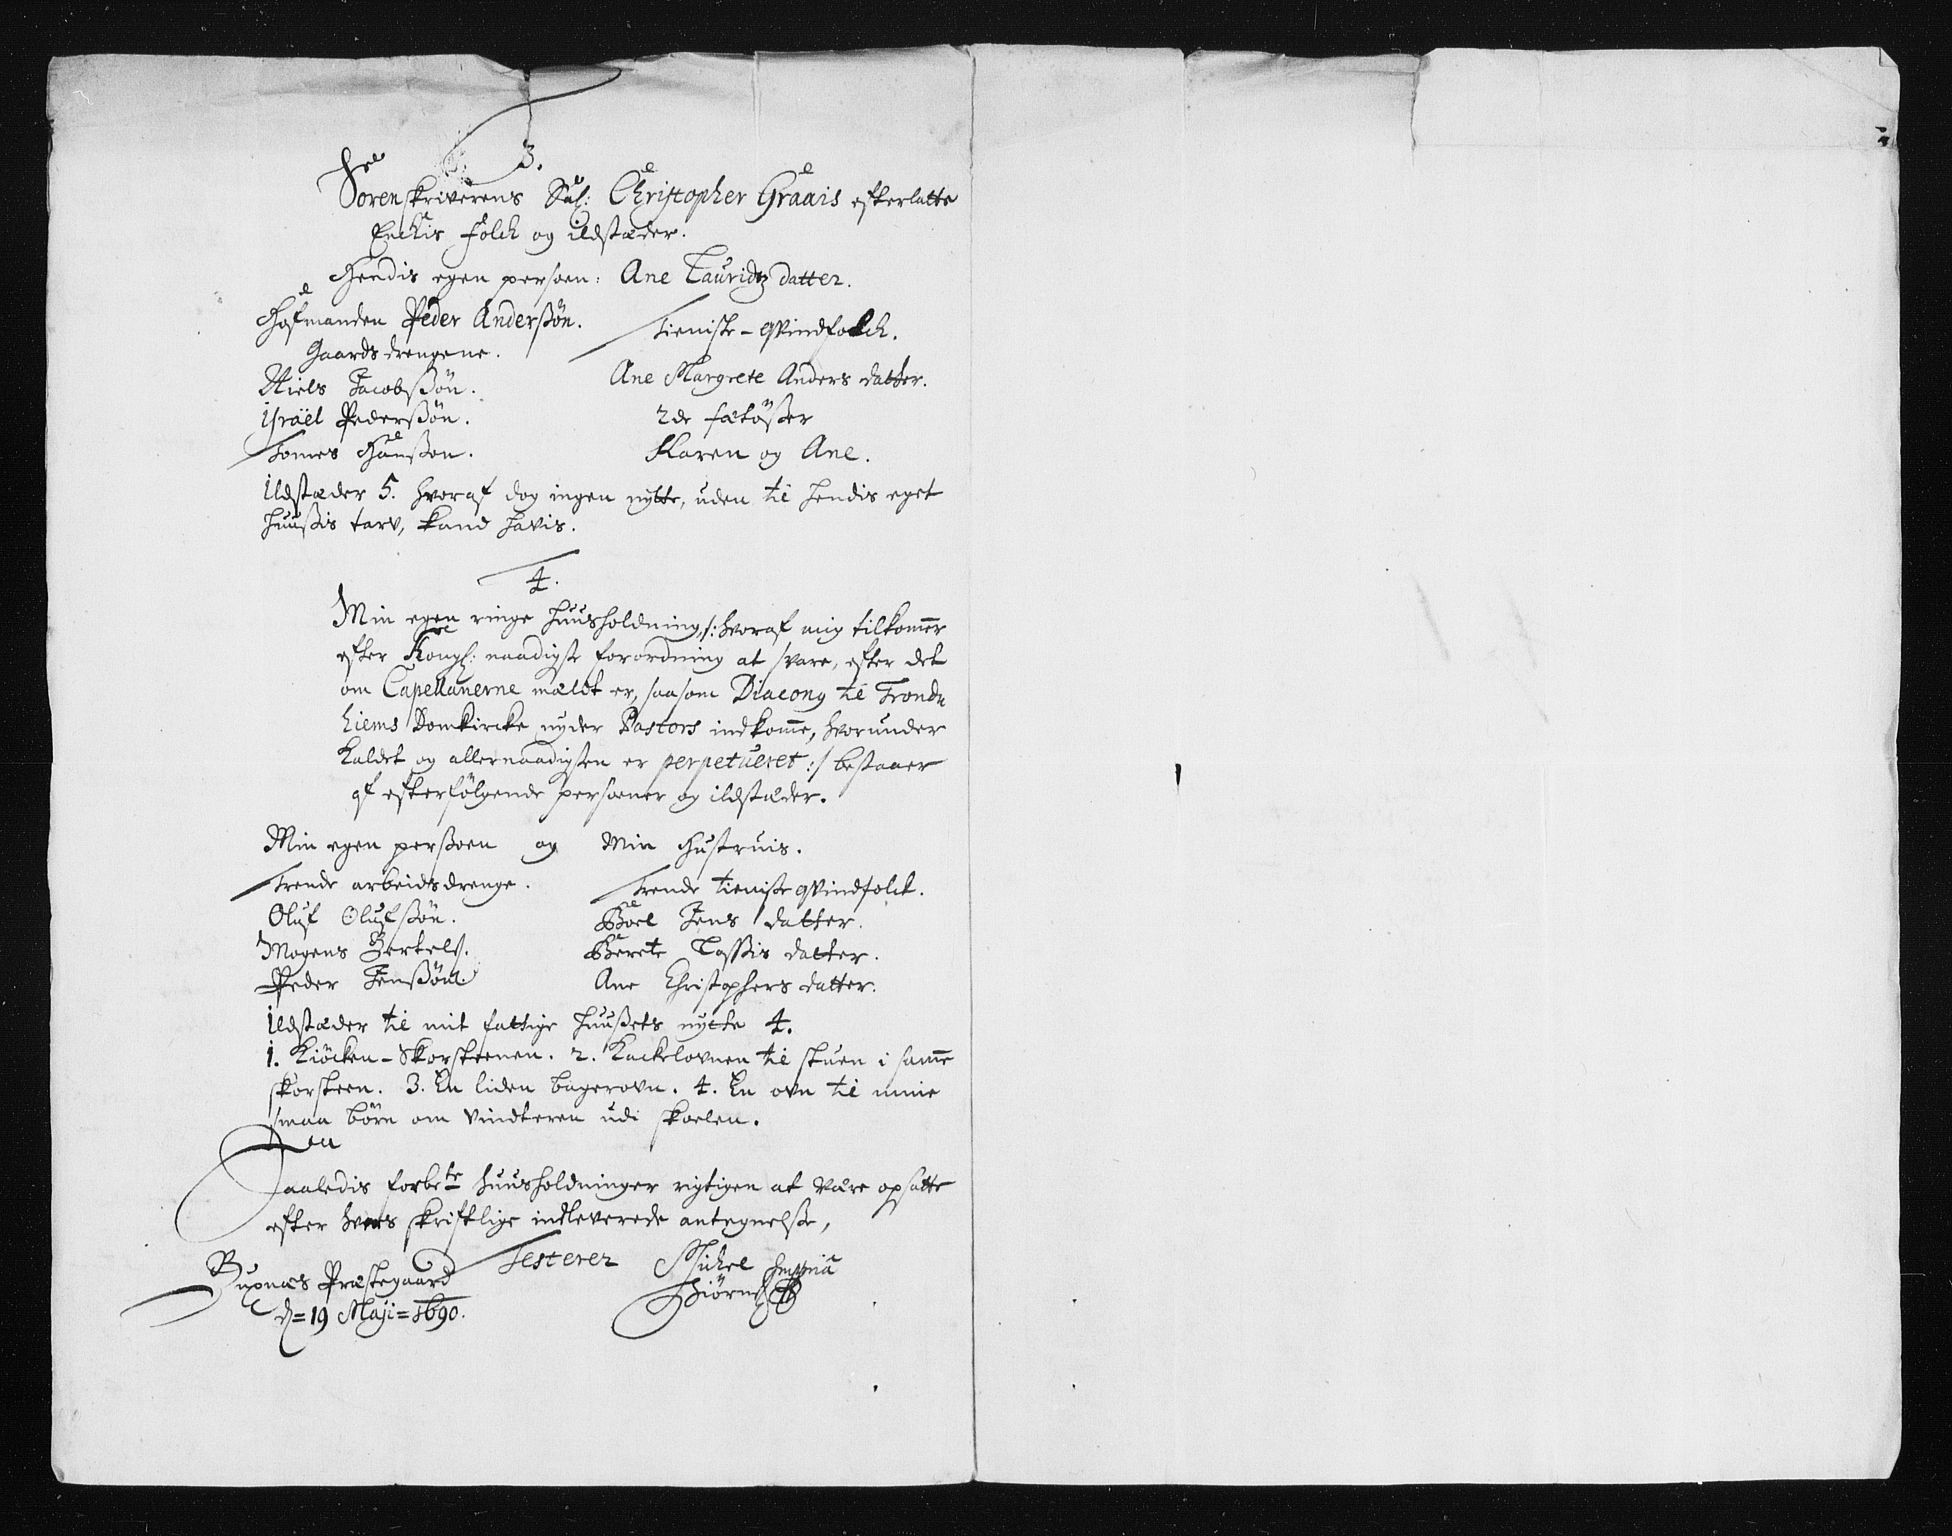 3.
Sorenskriverens Sal: Christopher Graais efterlatte
Enckis folck og ildstæder.
Hendis egen persoen: Ane Lauridtz datter.
Hofmanden Peder Anderssön.
Gaards drengene.
Niels Jacobssön.
Israël Pederssön.
Tomes Hansson.
Tieniste-qvindfolck.
Ane Margrete Anders datter.
2de fætösser
Karen og Ane.
Ildstæder 5. hvoraf dog ingen nytte, uden til hendis eget
huussis tarv, kand havis.
4.
Min egen ringe huusholdning /: hvoraf mig tilkommer
efter Kongl: naadigste forordning at svare, efter det
om Capellanerne mældt er, saasom Diacong til Trond
hiems Domkircke nyder Pastors indkomme, hvorunder
kaldet og allernaadigsten er perpetueret :/ bestaaer
af efterfölgende persoener og ildstæder.
Min egen perssoen og Min Hustruis.
Trende arbeids drenge.
Oluf Olufssön.
Mogens Berkels.
Peder Jenssön.
Trende tieniste qvindfolck.
Boel Jens datter.
Berete Lassis datter.
Ane Christophers datter.
Ildstæder til mit fattige huussets nytte 4.
1. Kiöcken-Skorsteenen. 2. Kackelovnen til stuen i samme
skorsteen. 3. En liden bagerovn. 4. En ovn til mine
smaa börn om vindteren udi skoelen.
Saaledis forbete huusholdninger rigtigen at være opsatte
efter hvers skriftlige indleverede antegnelsse,
Testerer Mickel
Hiörn
Bupnæs Præstegaard
d= 19 Maji= 1690.